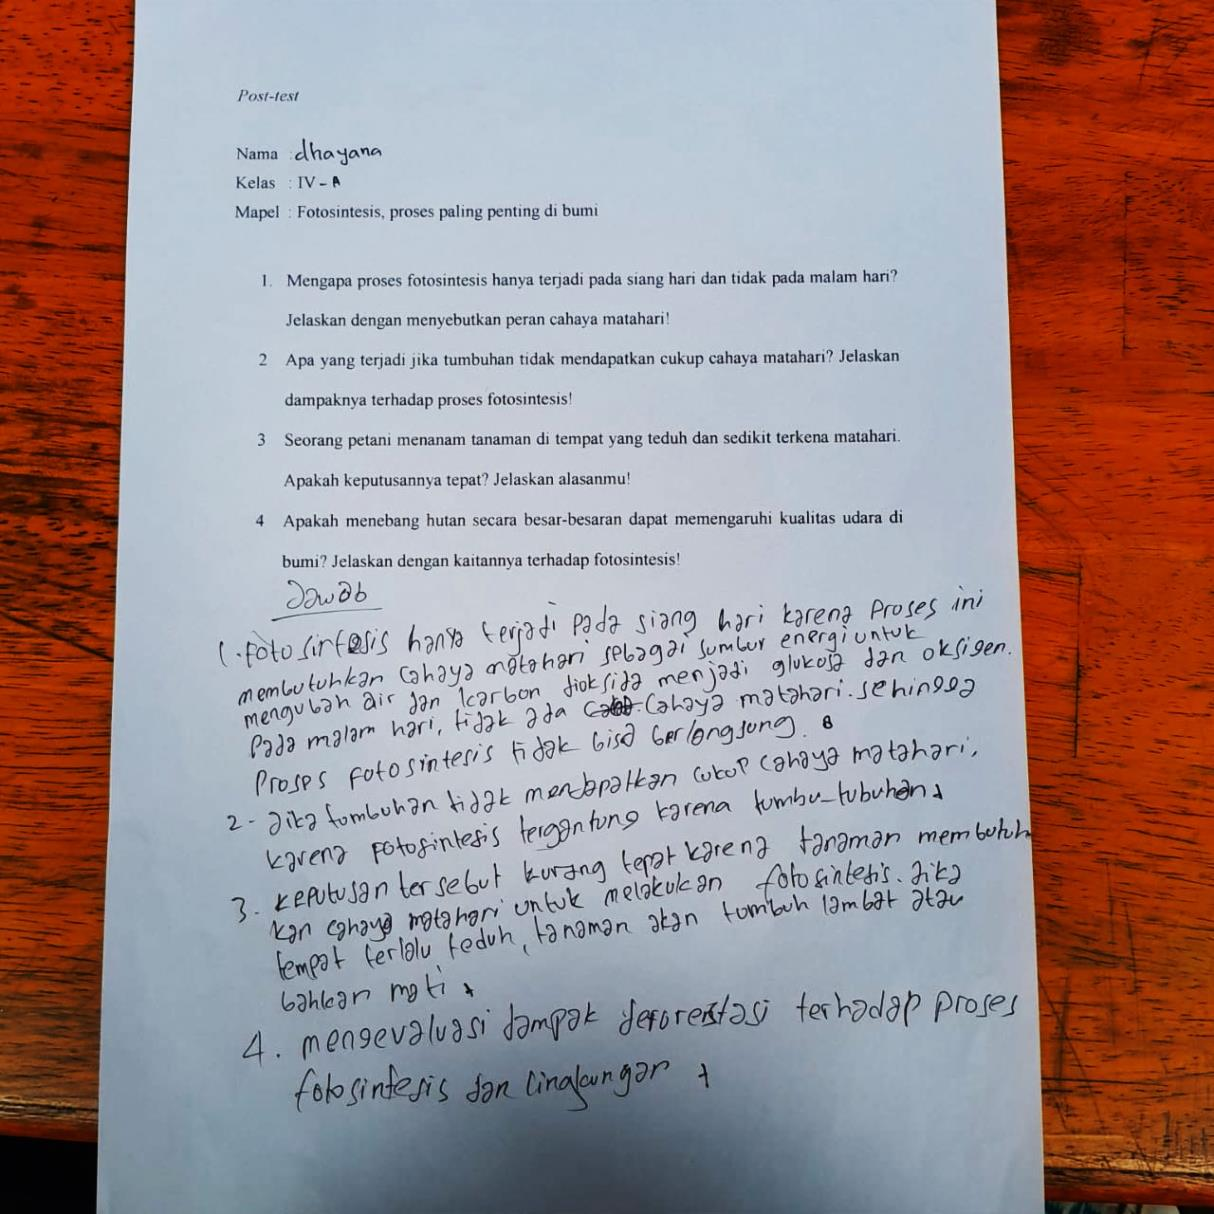 Post-test
Nama : dhayana
Kelas : IV - A
Mapel : Fotosintesis, proses paling penting di bumi
1. Mengapa proses fotosintesis hanya terjadi pada siang hari dan tidak pada malam hari?
Jelaskan dengan menyebutkan peran cahaya matahari!
2 Apa yang terjadi jika tumbuhan tidak mendapatkan cukup cahaya matahari? Jelaskan
dampaknya terhadap proses fotosintesis!
3 Seorang petani menanam tanaman di tempat yang teduh dan sedikit terkena matahari.
Apakah keputusannya tepat? Jelaskan alasanmu!
4 Apakah menebang hutan secara besar-besaran dapat memengaruhi kualitas udara di
bumi? Jelaskan dengan kaitannya terhadap fotosintesis!
Jawab
1. fotosintesis hanya terjadi pada siang hari karena proses ini
membutuhkan cahaya matahari sebagai sumbur energi untuk
mengubah air dan karbon dioksida menjadi glukosa dan oksigen.
Pada malam hari, tidak ada cahaya matahari. sehingga
Proses fotosintesis tidak bisa berlangsung.
2 - Jika tumbuhan tidak mendapatkan cukup cahaya matahari,
karena fotosintesis tergantung karena tumbu-tubuhan
3. keputusan tersebut kurang tepat karena tanaman membutuh
kan cahaya matahari untuk melakukan fotosintesis. Jika
tempat terlalu teduh, tanaman akan tumbuh lambat atau
bahkan mati
4. mengevaluasi dampak deforestasi terhadap proses
fotosintesis dan lingkungan